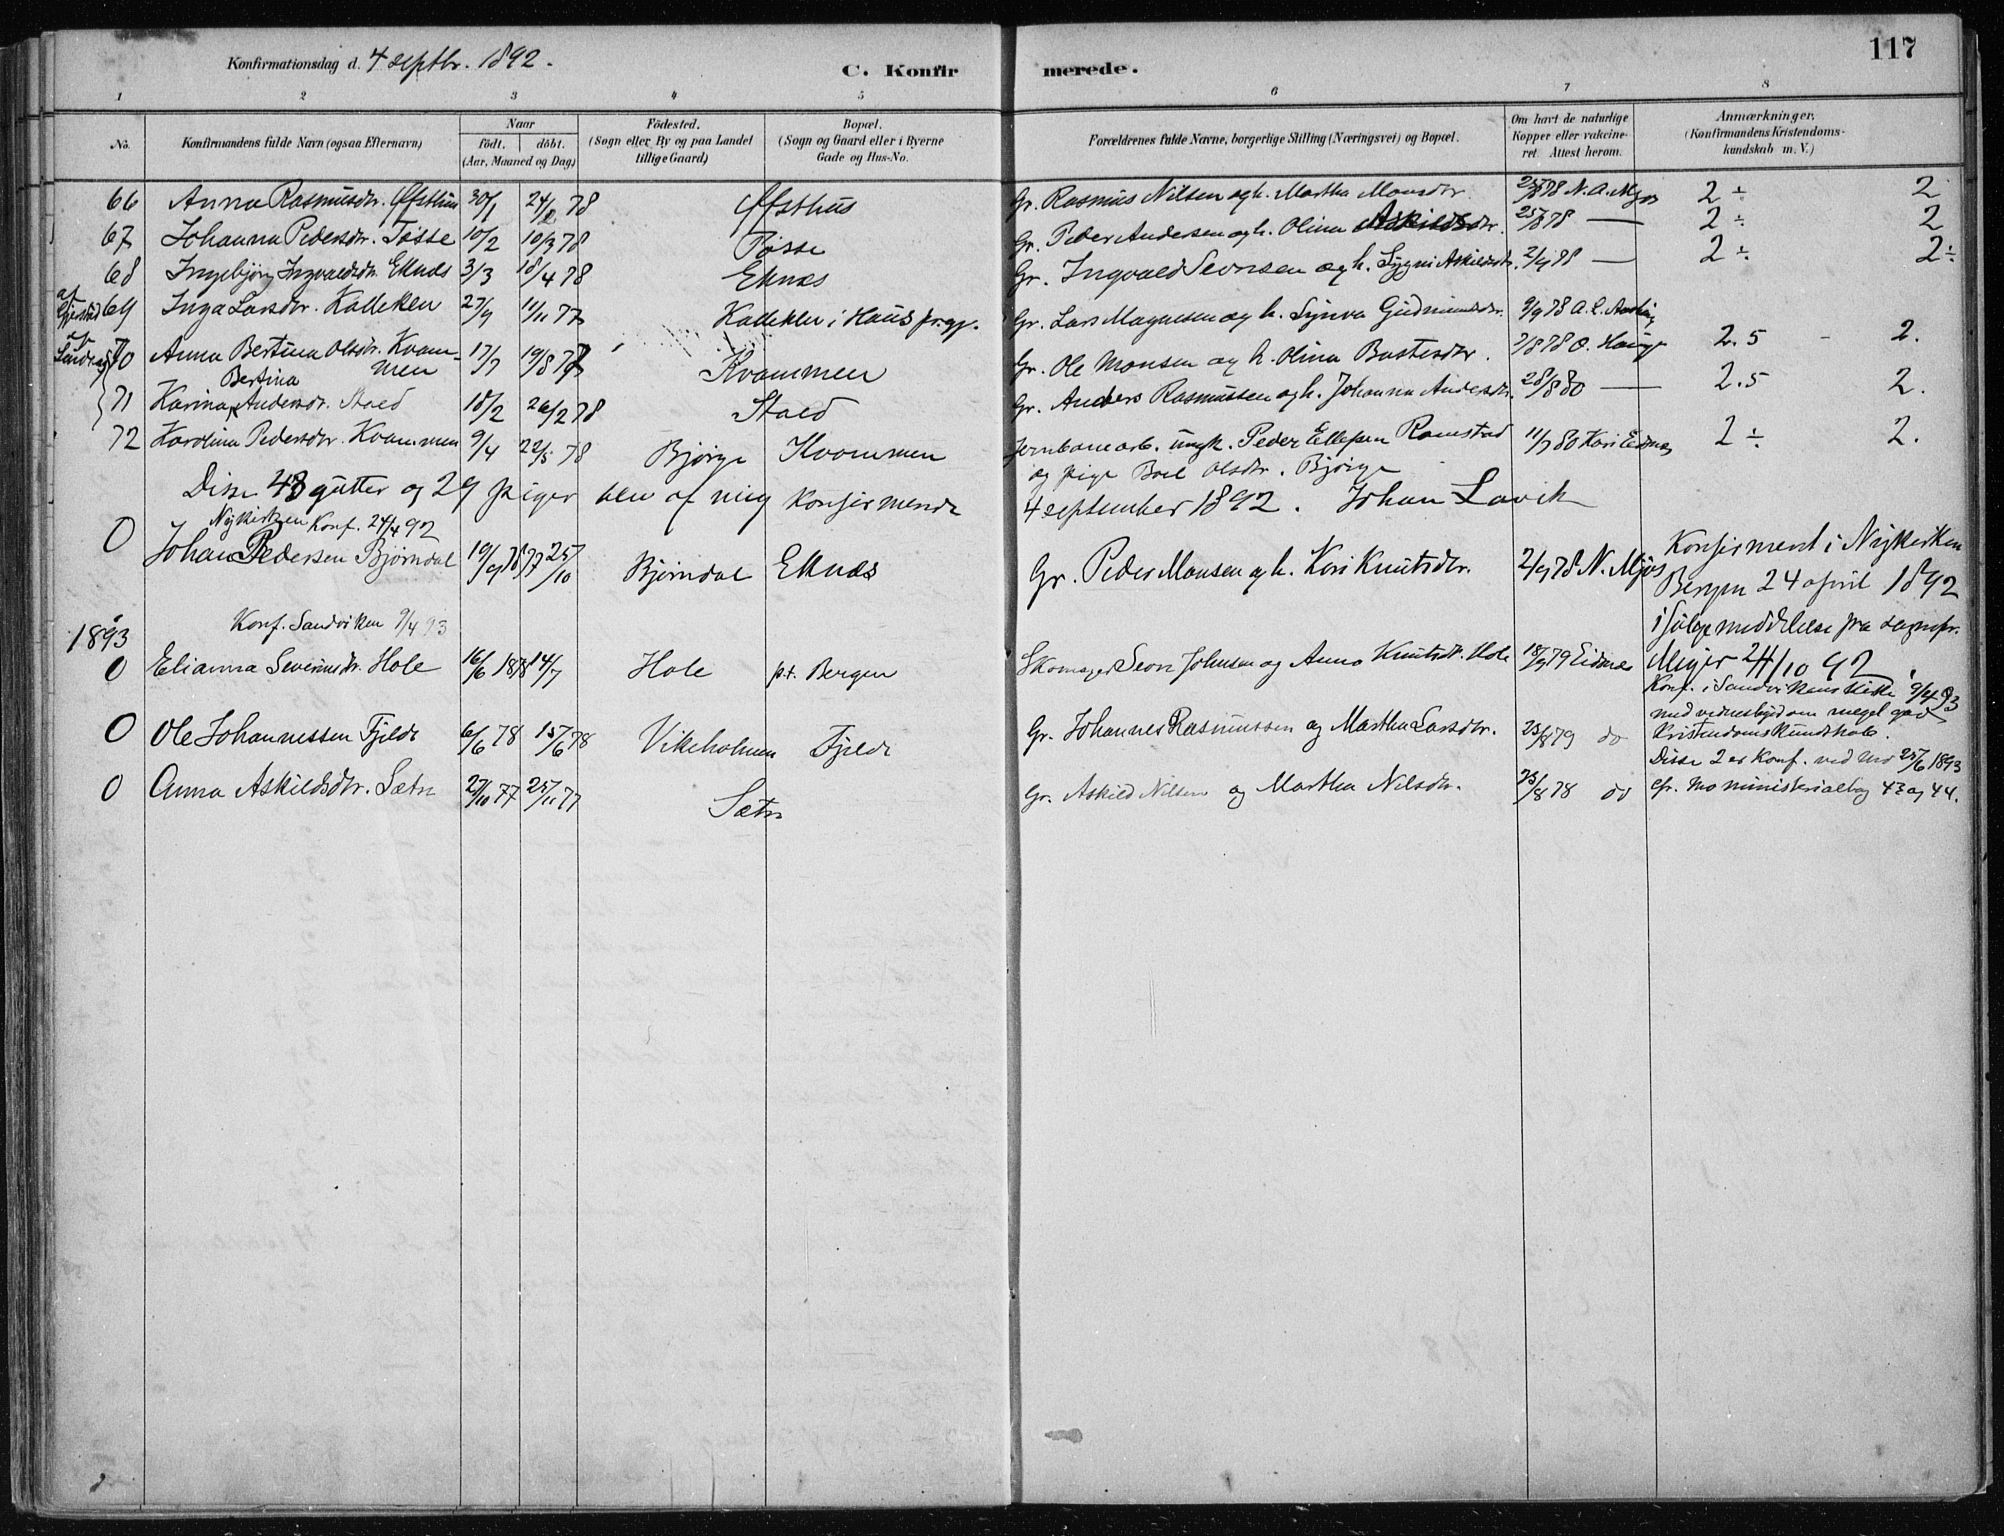 117
Konfirmationsdag d. 4 septbr. 1892.
C. Konfirmerede.
1 2 3 4 5 6 7 8
No. Konfirmandens fulde Navn (ogsaa Efternavn) Naar födt. döbt. (Aar, Maaned og Dag) Födested. (Sogn eller By og paa Landet tillige Gaard) Bopæl. (Sogn og Gaard eller i Byerne Gade og Hus-No. Forældrenes fulde Navne, borgerlige Stilling (Næringsvei) og Bopæl. Om havt de naturlige Kopper eller vakcineret. Attest herom. Anmærkninger. (Konfirmandens Kristendomskundskab m. V.)
66 Anna Rasmusdtr. Øfsthus 30/1 24/2 78 Øfsthus Gr. Rasmus Nilsen og h. Martha Monsdtr. 78 N. A. Mjøs 2 ÷ 2
67 Johanna Pedersdtr. Tøsse 10/2 10/3 78 Tøsse Gr. Peder Andersen og h. Olina Askildsdtr. 25/8 78 — 2 ÷ 2
68 Ingebjørg Ingvaldsdtr. Eknæs 3/3 18/4 78 Eknæs Gr. Ingvald Sevrsen og h. Sygni Askildsdtr. 2/9 78 — 2 ÷ 2÷
69 Inga Larsdtr. Kalleklev 27/9 11/11 77 Kalleklev i Haus prgj. Gr. Lars Magnesen og h. Synva Gudmundsdtr. 9/9 78
70 Anna Bertina Olsdtr. Kvammen 17/7 19/8 77 Kvammen Gr. Ole Monsen og h. Olina Bastesdtr. 7/8 78 O. Hauge 2.5 - 2.
71 Karina Bertina Andersdtr. Staed 18/2 26/2 78 Staed Gr. Anders Rasmussen og h. Johanna Andersdtr. 28/8 80 — 2.5 2.
72 Karolina Pedersdtr. Kvammen 9/4 22/5 78 Bjørge Kvammen Jernbanearb. ungk. Peder Ellefsen Ramstad og pige Boel Olsdtr. Bjørge 11/7 80 Kari Eidnes 2 ÷ 2.
Disse 43 gutter og 29 piger blev af mig konfirmerede 4 september 1892. Johan Lavik
Nykirken Konf. 24/4 92
0 Johan Pedersen Bjørndal 19/9 77 25/10 Bjørndal Eknæs Gr. Peder Monsen og h. Kari Knutsdtr. 2/9 78 N. Mjøs
Konfirment i Nykirken
Bergen 24 april 1892
ifølge meddelelse fra sognepr.
Meyer 24/10 92.
1893 Konf. Sandviken 9/4 93
0 Elianna Severinsdtr. Hole 16/6 1878 14/7 Hole p.t. Bergen Skomager Sevr Johnsen og Anna Knutsdtr. Hole 18/9 79 Eidnes
Konf. i Sandvikens Kirke 9/4 93
med vidnesbyrd om meget god
Kristendomskundskab.
0 Ole Johannessen Fjelde 6/6 78 15/6 78 Vikeholmen Fjelde Gr. Johannes Rasmussen og Martha Larsdtr. 23/8 79 do
0 Anna Askildsdtr. Sætre 27/10 77 25/11 77 Sætre Gr. Askild Nilsen og Martha Nilsdtr. 23/8 78 do
Disse 2 er Konf. ved Mo 25/6 1893
cfr. Mo ministerialbog 43 og 44.